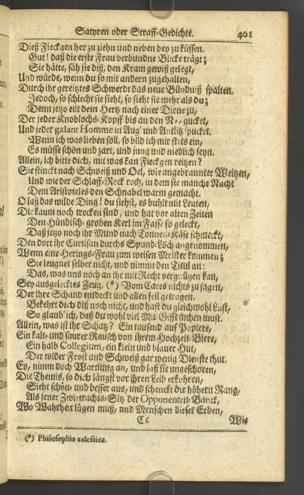 Satyren oder Straff-Gedichte. 401
Dieß Fieckgen her zu ziehn und neben bey zu küssen.
Gut! daß die erste Frau verbundne Blicke trägt;
Sie hätte, säh sie diß, den Kram gewiß gelegt,
Und würde, wenn du so mit andern zugehalten,
Durch ihr gereitztes Schwerdt das neue Bündniß spalten.
Jedoch, so schlecht sie sieht, so sieht sie mehr als du;
Denn jetzo eilt dein Hertz nach einer Dirne zu,
Der jeder Knoblochs-Kopff biß an den gucket,
Und jeder galane Homme in Aug' und Antlitz spucket.
Wenn ich was lieben soll, so bild ich mir stets ein,
Es müsse schön und zart, und jung und niedlich seyn.
Allein, ich bitte dich, mit was kan Fieckgen reitzen?
Sie stinckt nach Schweiß und Oel, wie angebrannter Weitzen,
Und wie der Schlaff-Rock roch, in dem sie manche Nacht
Dem Aristoteles den Schnabel warm gemacht.
O laß das wilde Ding! du siehst, es buhlt mit Leuten,
Die kaum noch trocken sind, und hat vor alten Zeiten
Den Hündisch-groben Kerl im Fasse so geleckt,
Daß jetzo noch ihr Mund nach Tonnen-Käse schmeckt,
Den dort ihr Curtisan durchs Spund-Loch angenommen,
Wenn eine Herings-Frau zum weisen Meister kommen;
Sie leugnet selber nicht, und nimmt den Titul an:
Das, was uns noch an ihr mit Recht vergnügen kan,
Sey ausgelecktes Zeug. (*) Vom Cares nichts zu sagen,
Der ihre Schand entdeckt und allen feil getragen.
Bekehrt dich diß noch nicht, und hast du gleichwohl Lust,
So glaub' ich, daß du wohl viel Mit-Gifft kriechen must.
Allein, was ist ihr Schatz? Ein tausend auf Papiere,
Ein kalt- und saurer Rausch von ihrem Hochzeit-Biere,
Ein halb Collegium, ein klein und blauer Hut,
Der wider Frost und Schweiß gar wenig Dienste thut.
Ey, nimm doch Wartung an, und laß sie ungeschoren,
Die Themis, so dich längst vor ihren Leib erkohren,
Sieht schön- und besser aus, und schenckt dir höhern Rang,
Als jener Zwitrachts-Sitz der Opponenten-Banck,
Wo Wahrheit lügen muß, und Menschen dieser Erden,
Cc Wie
(*) Philosophia